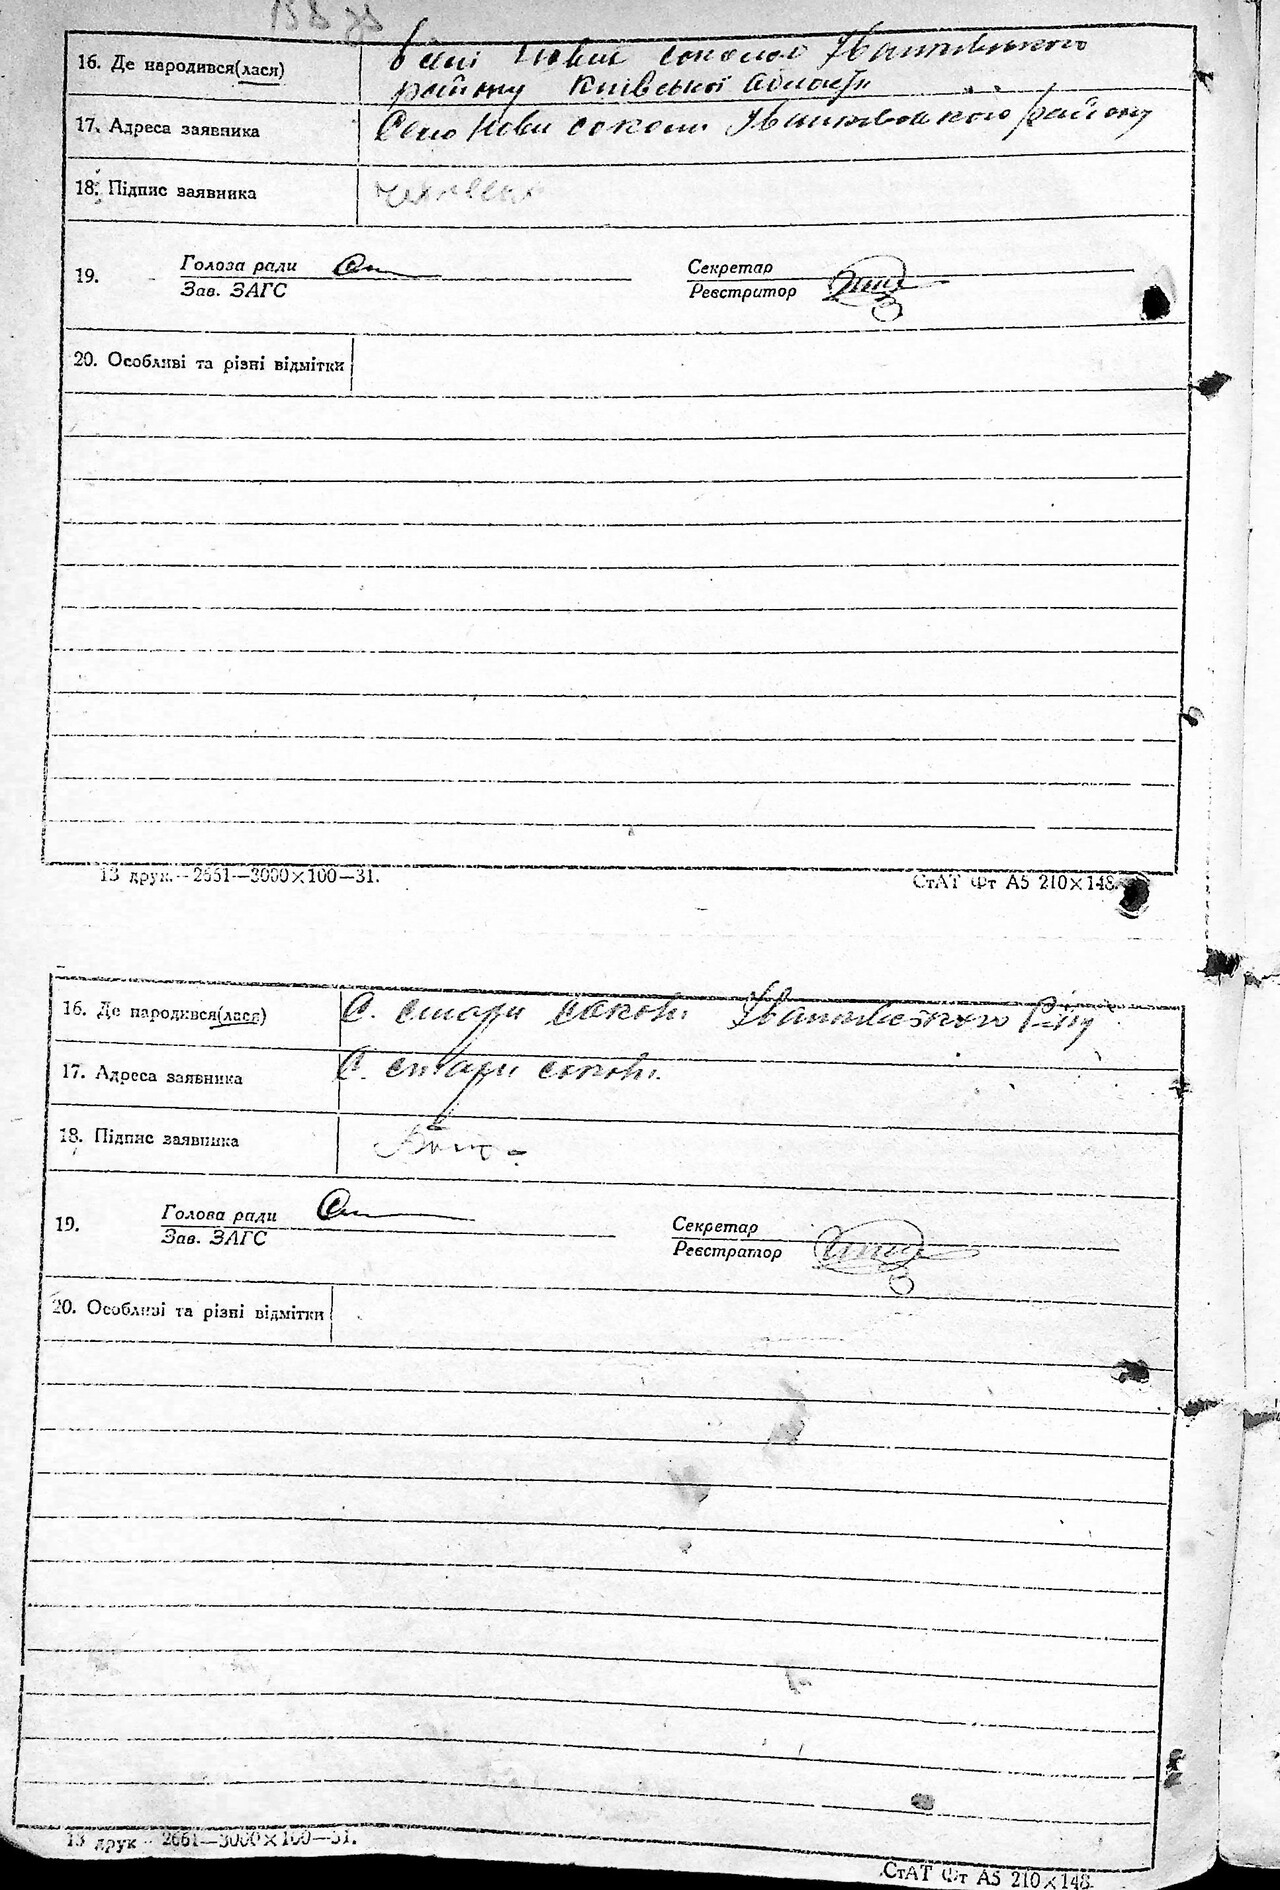 16. Де народився(лася) в селі Нових соколах Іванківського
району Київської области
17. Адреса заявника Село Нови соколи Іванківського району
18. Підпис заявника
19. Голова ради Секретар
Зав. ЗАГС Реєстритор
20. Особливі та різні відмітки
13 друк.—2661—3000×100—31. СтАТ Фт А5 210×148
16. Де народився(лася) С. стари соколи Іванківського Р-ну
17. Адреса заявника С. стари соколи.
18. Підпис заявника
19. Голова ради Секретар
Зав. ЗАГС Реєстратор
20. Особливі та різні відмітки
13 друк—2661—3000×100—31.
СтАТ Фт А5 210×148